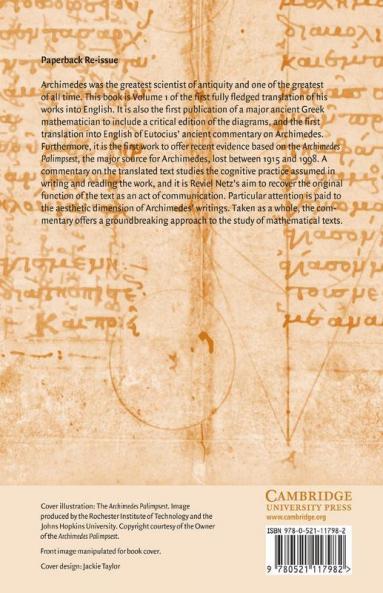 Paperback Re-issue
Archimedes was the greatest scientist of antiquity and one of the greatest
of all time. This book is Volume 1 of the first fully fledged translation of his
works into English. It is also the first publication of a major ancient Greek
mathematician to include a critical edition of the diagrams, and the first
translation into English of Eutocius' ancient commentary on Archimedes.
Furthermore, it is the first work to offer recent evidence based on the Archimedes
Palimpsest, the major source for Archimedes, lost between 1915 and 1998. A
commentary on the translated text studies the cognitive practice assumed in
writing and reading the work, and it is Reviel Netz's aim to recover the original
function of the text as an act of communication. Particular attention is paid to
the aesthetic dimension of Archimedes' writings. Taken as a whole, the com-
mentary offers a groundbreaking approach to the study of mathematical texts.
Cover illustration: The Archimedes Palimpsest. Image
produced by the Rochester Institute of Technology and the
Johns Hopkins University. Copyright courtesy of the Owner
of the Archimedes Palimpsest.
Front image manipulated for book cover.
Cover design: Jackie Taylor
CAMBRIDGE
UNIVERSITY PRESS
www.cambridge.org
ISBN 978-0-521-11798-2
9 780521 117982 >